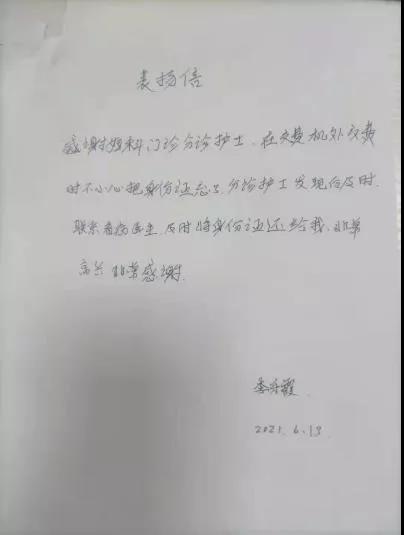 表扬信
感谢妇科门诊分诊护士、在交费机处交费
时不小心把身份证忘了.分诊护士发现后及时.
联系看病医生.及时将身份证还给我、非常
高兴 非常感谢.
2021.6.13